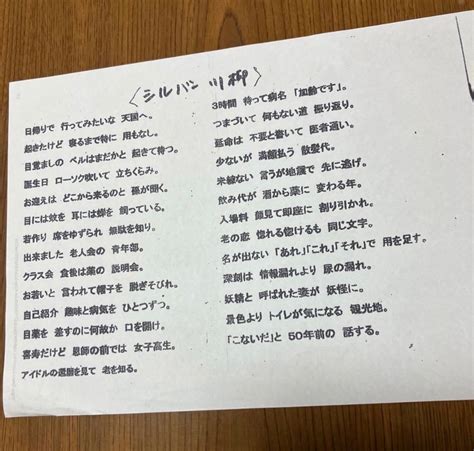 〈シルバー川柳〉
日帰りで 行ってみたいな 天国へ。
起きたけど 寝るまで特に 用もなし。
目覚ましの ベルはまだかと 起きて待つ。
誕生日 ローソク吹いて 立ちくらみ。
お迎えは どこから来るのと 孫が聞く。
目には蚊を 耳には蝉を 飼っている。
若作り 席をゆずられ 無駄を知り。
出来ました 老人会の 青年部。
クラス会 食後は薬の 説明会。
お若いと 言われて帽子を 脱ぎそびれ。
自己紹介 趣味と病気を ひとつずつ。
目薬を 差すのに何故か 口を開け。
喜寿だけど 恩師の前では 女子高生。
アイドルの還暦を見て 老を知る。
3時間 待って病名 「加齢です」。
つまづいて 何もない道 振り返り。
延命は 不要と書いて 医者通い。
少ないが 満額払う 散髪代。
米緩ない 言うが地震で 先に逃げ。
飲み代が 酒から薬に 変わる年。
入場料 顔見て即座に 割り引かれ。
老の恋 惚れる惚けるも 同じ文字。
名が出ない 「あれ」「これ」「それ」で 用を足す。
深刻は 情報漏れより 尿の漏れ。
妖精と 呼ばれた姿が 妖怪に。
景色より トイレが気になる 観光地。
「こないだ」と 50年前の 話する。